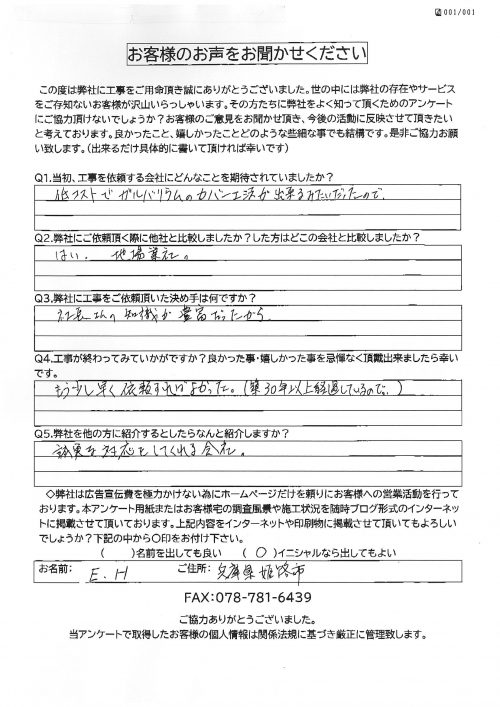 001/001
お客様のお声をお聞かせください
この度は弊社に工事をご用命頂き誠にありがとうございました。世の中には弊社の存在やサービス
をご存知ないお客様が沢山いらっしゃいます。その方たちに弊社をよく知って頂くためのアンケート
にご協力頂けないでしょうか？お客様のご意見をお聞かせ頂き、今後の活動に反映させて頂きたい
と考えております。良かったこと、嬉しかったことどのような些細な事でも結構です。是非ご協力お願
い致します。（出来るだけ具体的に書いて頂ければ幸いです）
Q1.当初、工事を依頼する会社にどんなことを期待されていましたか？
低コストでガルバリウムのカバー工法が出来るみたいだったので、
Q2.弊社にご依頼頂く際に他社と比較しましたか？した方はどこの会社と比較しましたか？
はい。 地場業社。
Q3.弊社に工事をご依頼頂いた決め手は何ですか？
社長さんの知識が豊富だったから
Q4.工事が終わってみていかがですか？良かった事・嬉しかった事を忌憚なく頂戴出来ましたら幸い
です。
もう少し早く依頼すればよかった。（築30年以上経過しているので。）
Q5.弊社を他の方に紹介するとしたらなんと紹介しますか？
誠実な対応をしてくれる会社。
◇弊社は広告宣伝費を極力かけない為にホームページだけを頼りにお客様への営業活動を行って
おります。本アンケート用紙またはお客様宅の調査風景や施工状況を随時ブログ形式のインターネッ
トに掲載させて頂いております。上記内容をインターネットや印刷物に掲載させて頂いてもよろしい
でしょうか？下記の中から〇印をお付け下さい。
（　）名前を出しても良い　（〇）イニシャルなら出してもよい
お名前： E.H ご住所： 兵庫県姫路市
FAX:078-781-6439
ご協力ありがとうございました。
当アンケートで取得したお客様の個人情報は関係法規に基づき厳正に管理致します。